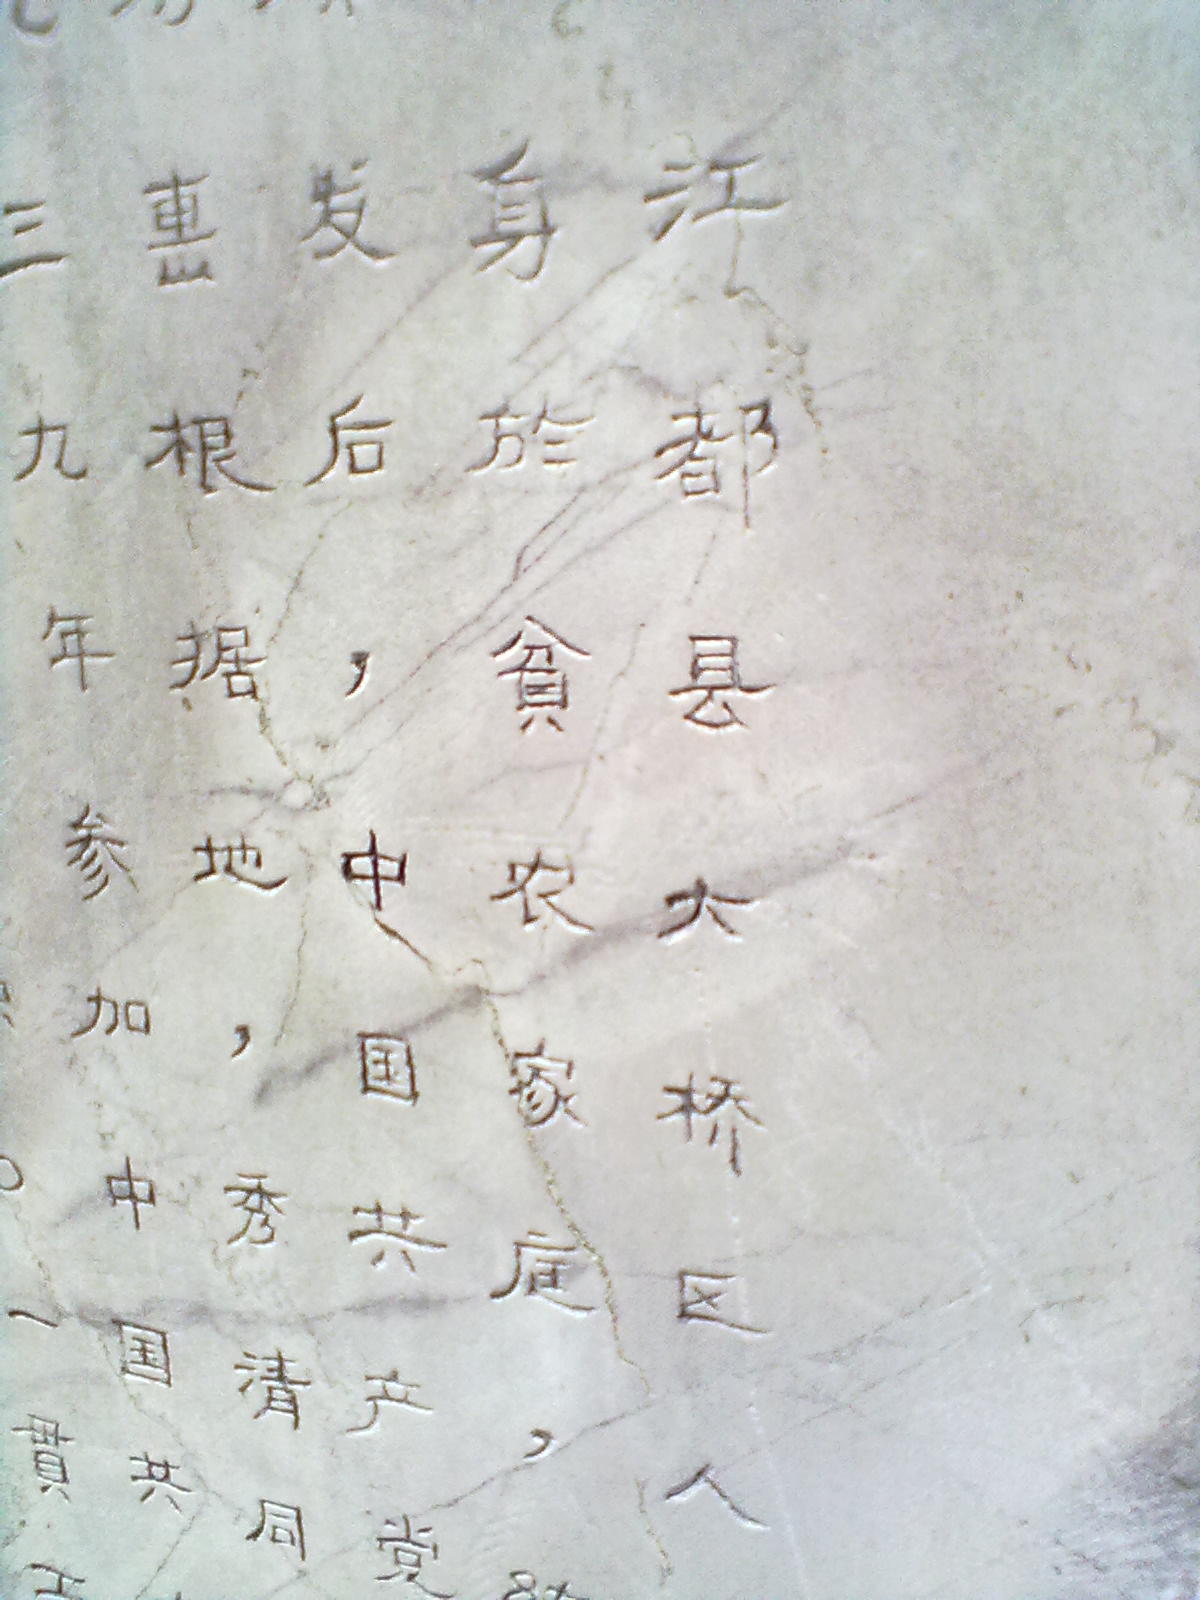 江都县大桥区人
身於贫农家庭，
发后，中国共产党
根据地，秀清同
三九年参加中国共
一贯